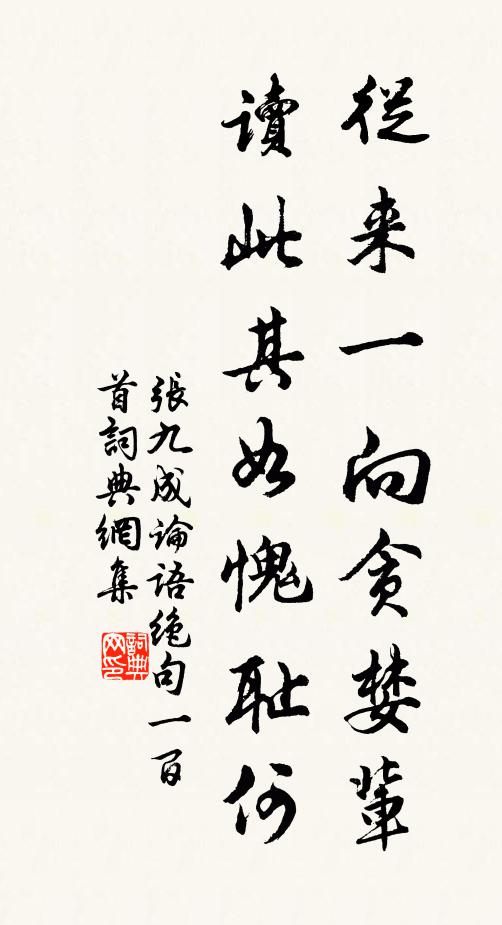 從来一向貪婪輩
讀此其如愧耻何
張九成論語绝句一百
首詞典網集
詞典网印